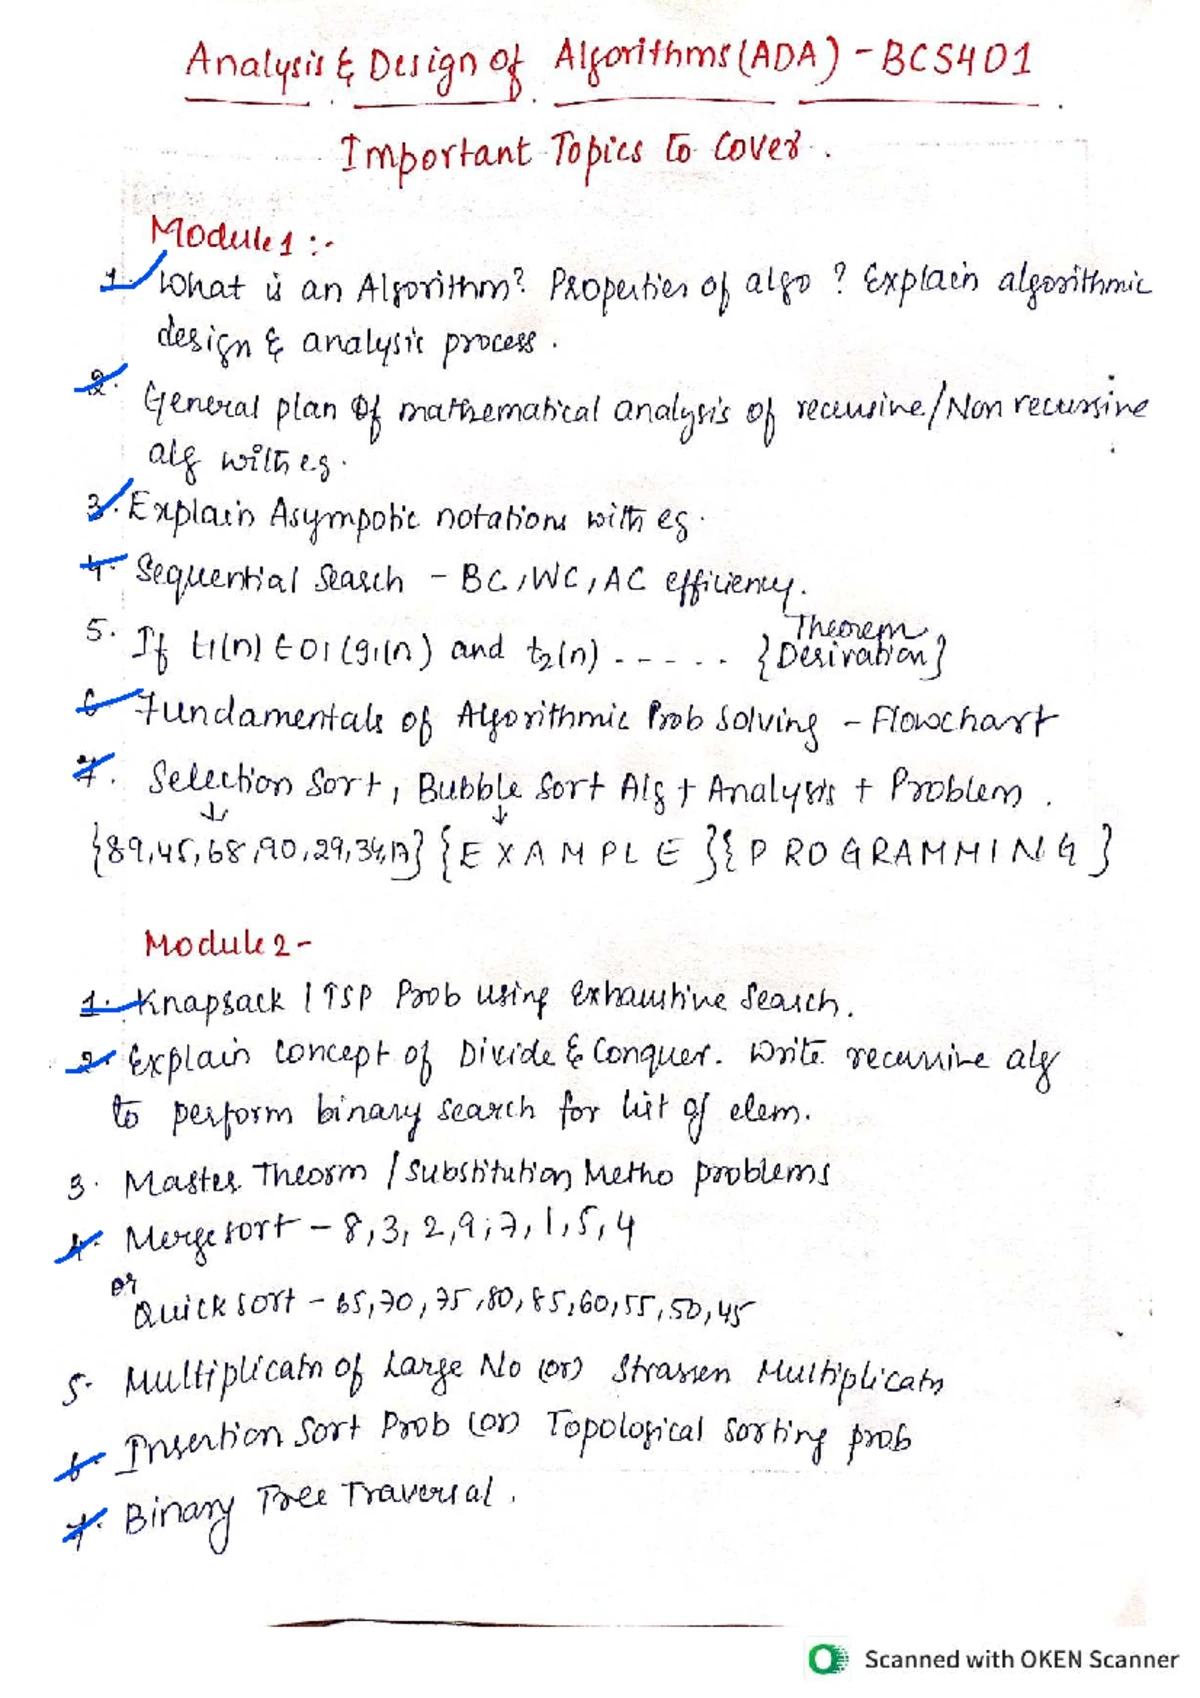 Analysis & Design of Algorithms (ADA) - BCS401
Important Topics to Cover.
Module 1 :-
1. What is an Algorithm? Properties of algo? Explain algorithmic
design & analysis process.
2. General plan of mathematical analysis of recursive/Non recursive
alg with eg.
3. Explain Asympotic notations with eg.
4. Sequential Search - BC, WC, AC efficiency.
5. If t1(n) ∈ O1(g1(n) and t2(n) ------ {Theorem Derivation}
6 Fundamentals of Algorithmic Prob Solving - Flowchart
7. Selection Sort, Bubble Sort Alg + Analysis + Problem.
{89,45,68,90,29,34,17} {E X A M P L E } { P R O G R A M M I N G }
Module 2 -
1. Knapsack / TSP Prob using Exhaustive Search.
2. Explain concept of Divide & Conquer. Write recursive alg
to perform binary search for list of elem.
3. Master Theorm / Substitution Metho problems
4. Merge sort - 8, 3, 2, 9, 7, 1, 5, 4
or
Quick sort - 65, 70, 75, 80, 85, 60, 55, 50, 45
5. Multiplicatn of Large No (or) Strassen Multiplicatn
6. Insertion Sort Prob (or) Topological Sorting prob
7. Binary Tree Traversal.
Scanned with OKEN Scanner